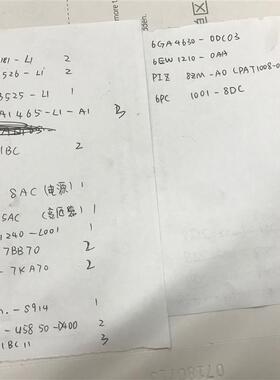 181-L1 2
526-L1 2
3525-L1
A1465-L1-A1 3
1BC 2
8AC (电源) 1
5AC 1
1240-L001 1
7BB70 2
-7KA70 2
n.-S914 1
-U5850-D400 2
1BC11 3
6GA4630-0DC03
6EW1210-0AA
PIZ 82M-A0 LPAT1008-0
6PC 1001-8DC
07180